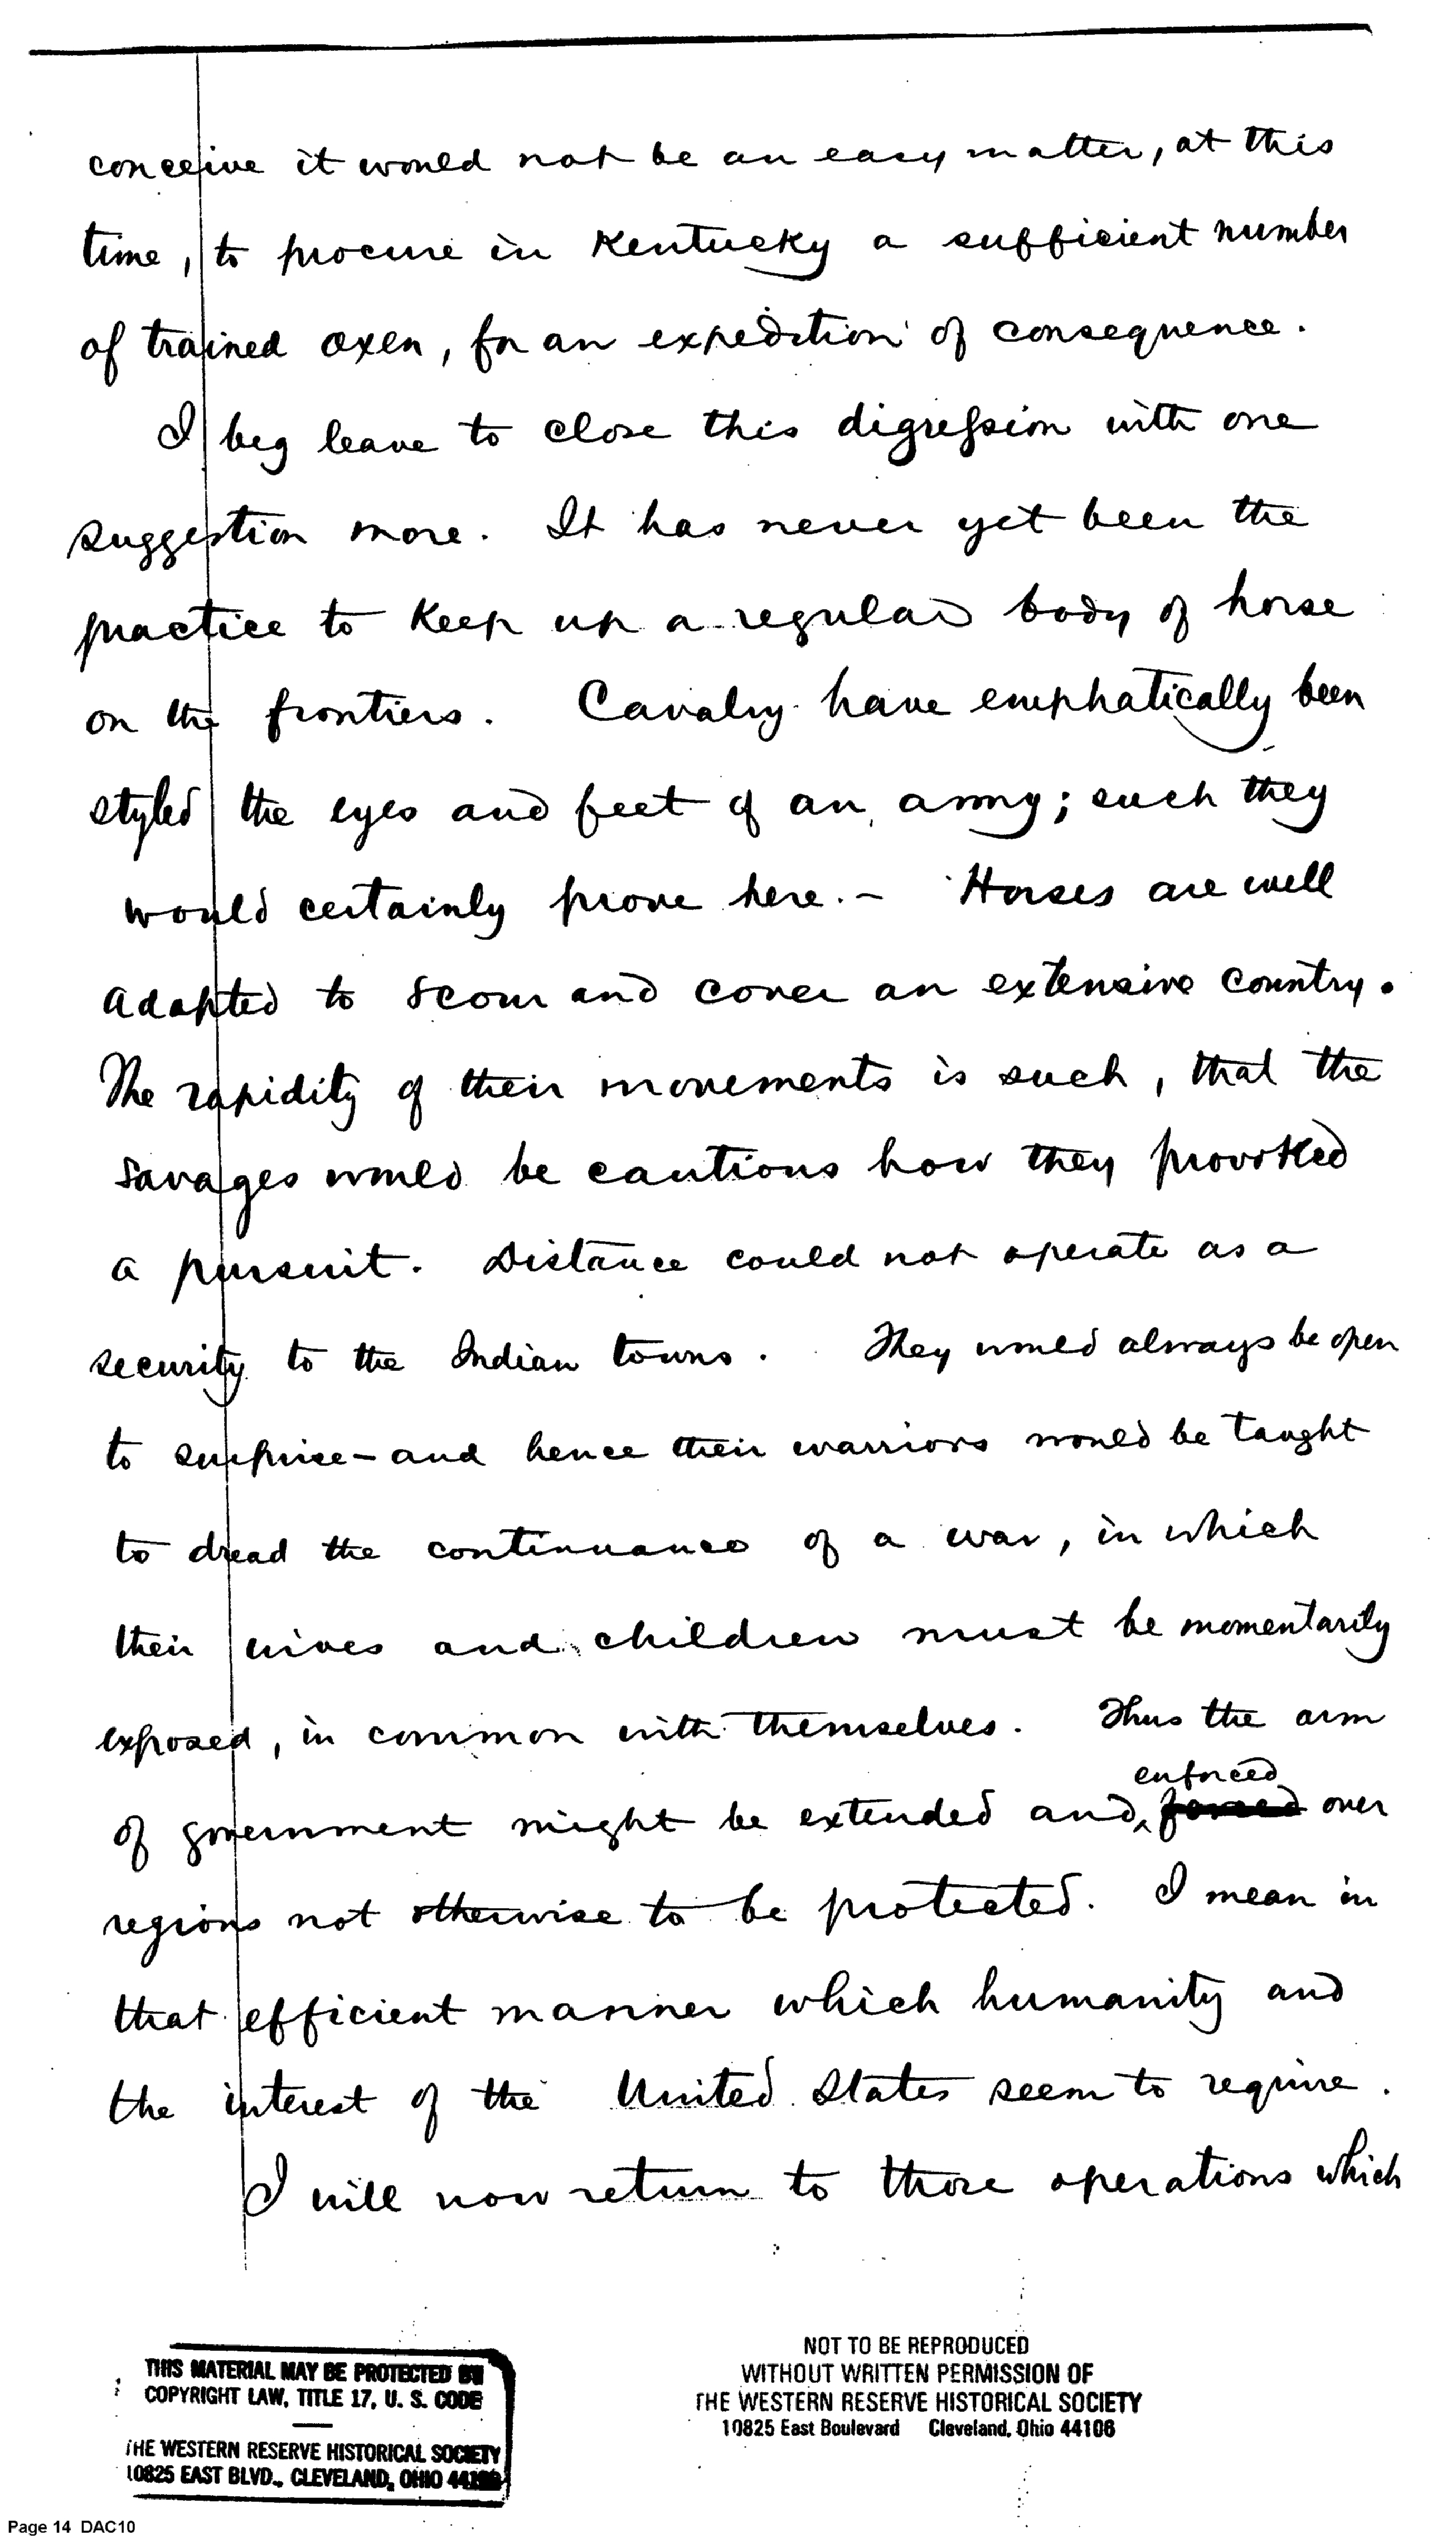 conceive it would not be an easy matter, at this
time, to procure in Kentucky a sufficient number
of trained oxen, for an expedition of consequence.
I beg leave to close this digression with one
suggestion more. It has never yet been the
practice to keep up a regular body of horse
on the frontiers. Cavalry have emphatically been
styled the eyes and feet of an army; such they
would certainly prove here. - Horses are well
adapted to scour and cover an extensive country.
The rapidity of their movements is such, that the
savages would be cautious how they provoked
a pursuit. Distance could not operate as a
security to the Indian towns. They would always be open
to surprise - and hence their warriors would be taught
to dread the continuance of a war, in which
their wives and children must be momentarily
exposed, in common with themselves. Thus the arm
enforced
of government might be extended and ^ forced over
regions not otherwise to be protected. I mean in
that efficient manner which humanity and
the interest of the United States seem to require.
I will now return to those operations which
THIS MATERIAL MAY BE PROTECTED BY
COPYRIGHT LAW, TITLE 17, U. S. CODE
THE WESTERN RESERVE HISTORICAL SOCIETY
10825 EAST BLVD., CLEVELAND, OHIO 44106
NOT TO BE REPRODUCED
WITHOUT WRITTEN PERMISSION OF
THE WESTERN RESERVE HISTORICAL SOCIETY
10825 East Boulevard Cleveland, Ohio 44106
Page 14 DAC10